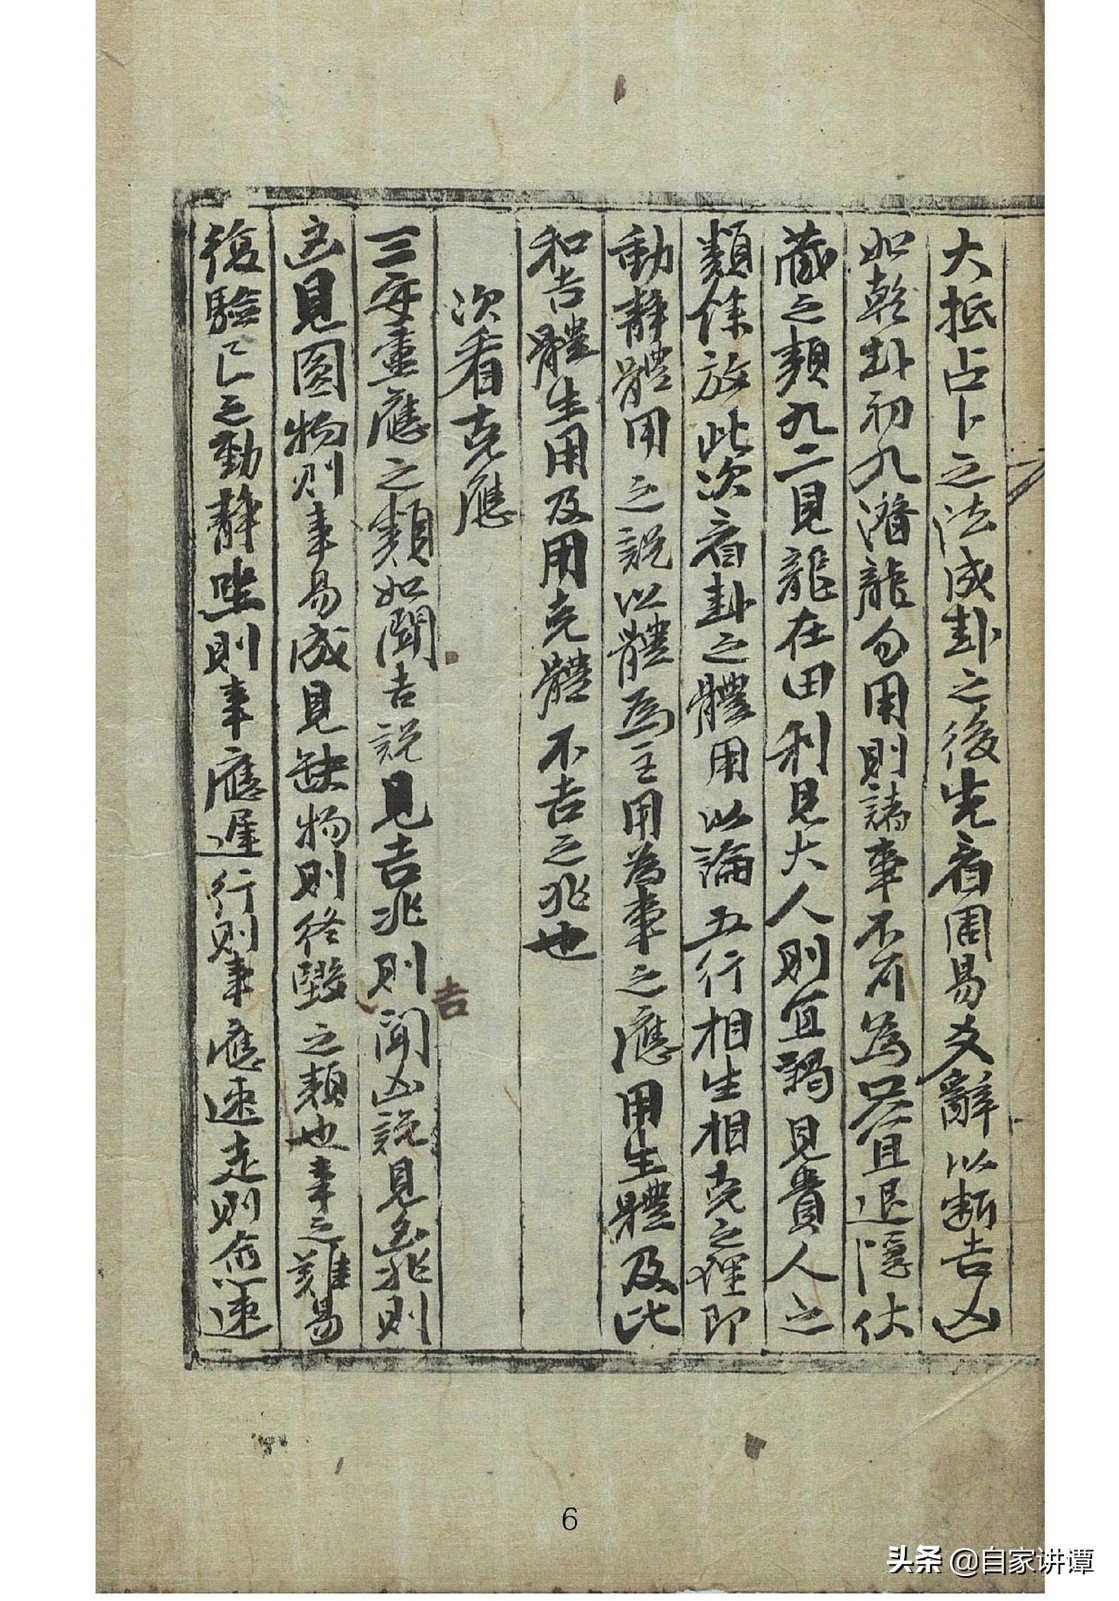 大抵占卜之法成卦之後先看周易爻辭以斷吉凶
如乾卦初九潛龍勿用則諸事不可為宜退隱伏
藏之類九二見龍在田利見大人則宜謁見貴人之
類餘放此次看卦之體用以論五行相生相克之理即
動靜體用之說以體為主用為事之應用生體及比
和吉體生用及用克體不吉之兆也
次看克應
三要靈應之類如聞吉說見吉兆則吉聞凶說見凶兆則
凶見圓物則事易成見缺物則終毀之類也事之難易
復驗己之動靜坐則事應遲行則事應速走則愈速
6
头条 @自家讲谭